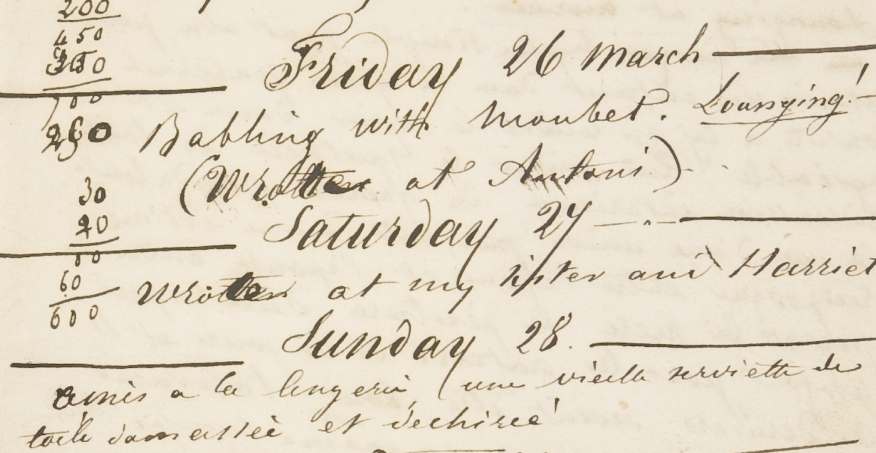 200
450
350
Friday 26 march
700
250 Babling with Moubet. Lounging!
(Wrotten at Antoni)
30
20
Saturday 27
60
600
Wrotten at my sister and Harriet
Sunday 28.
remis a la lingerie, une vieille serviette de
toile damassée et dechirée